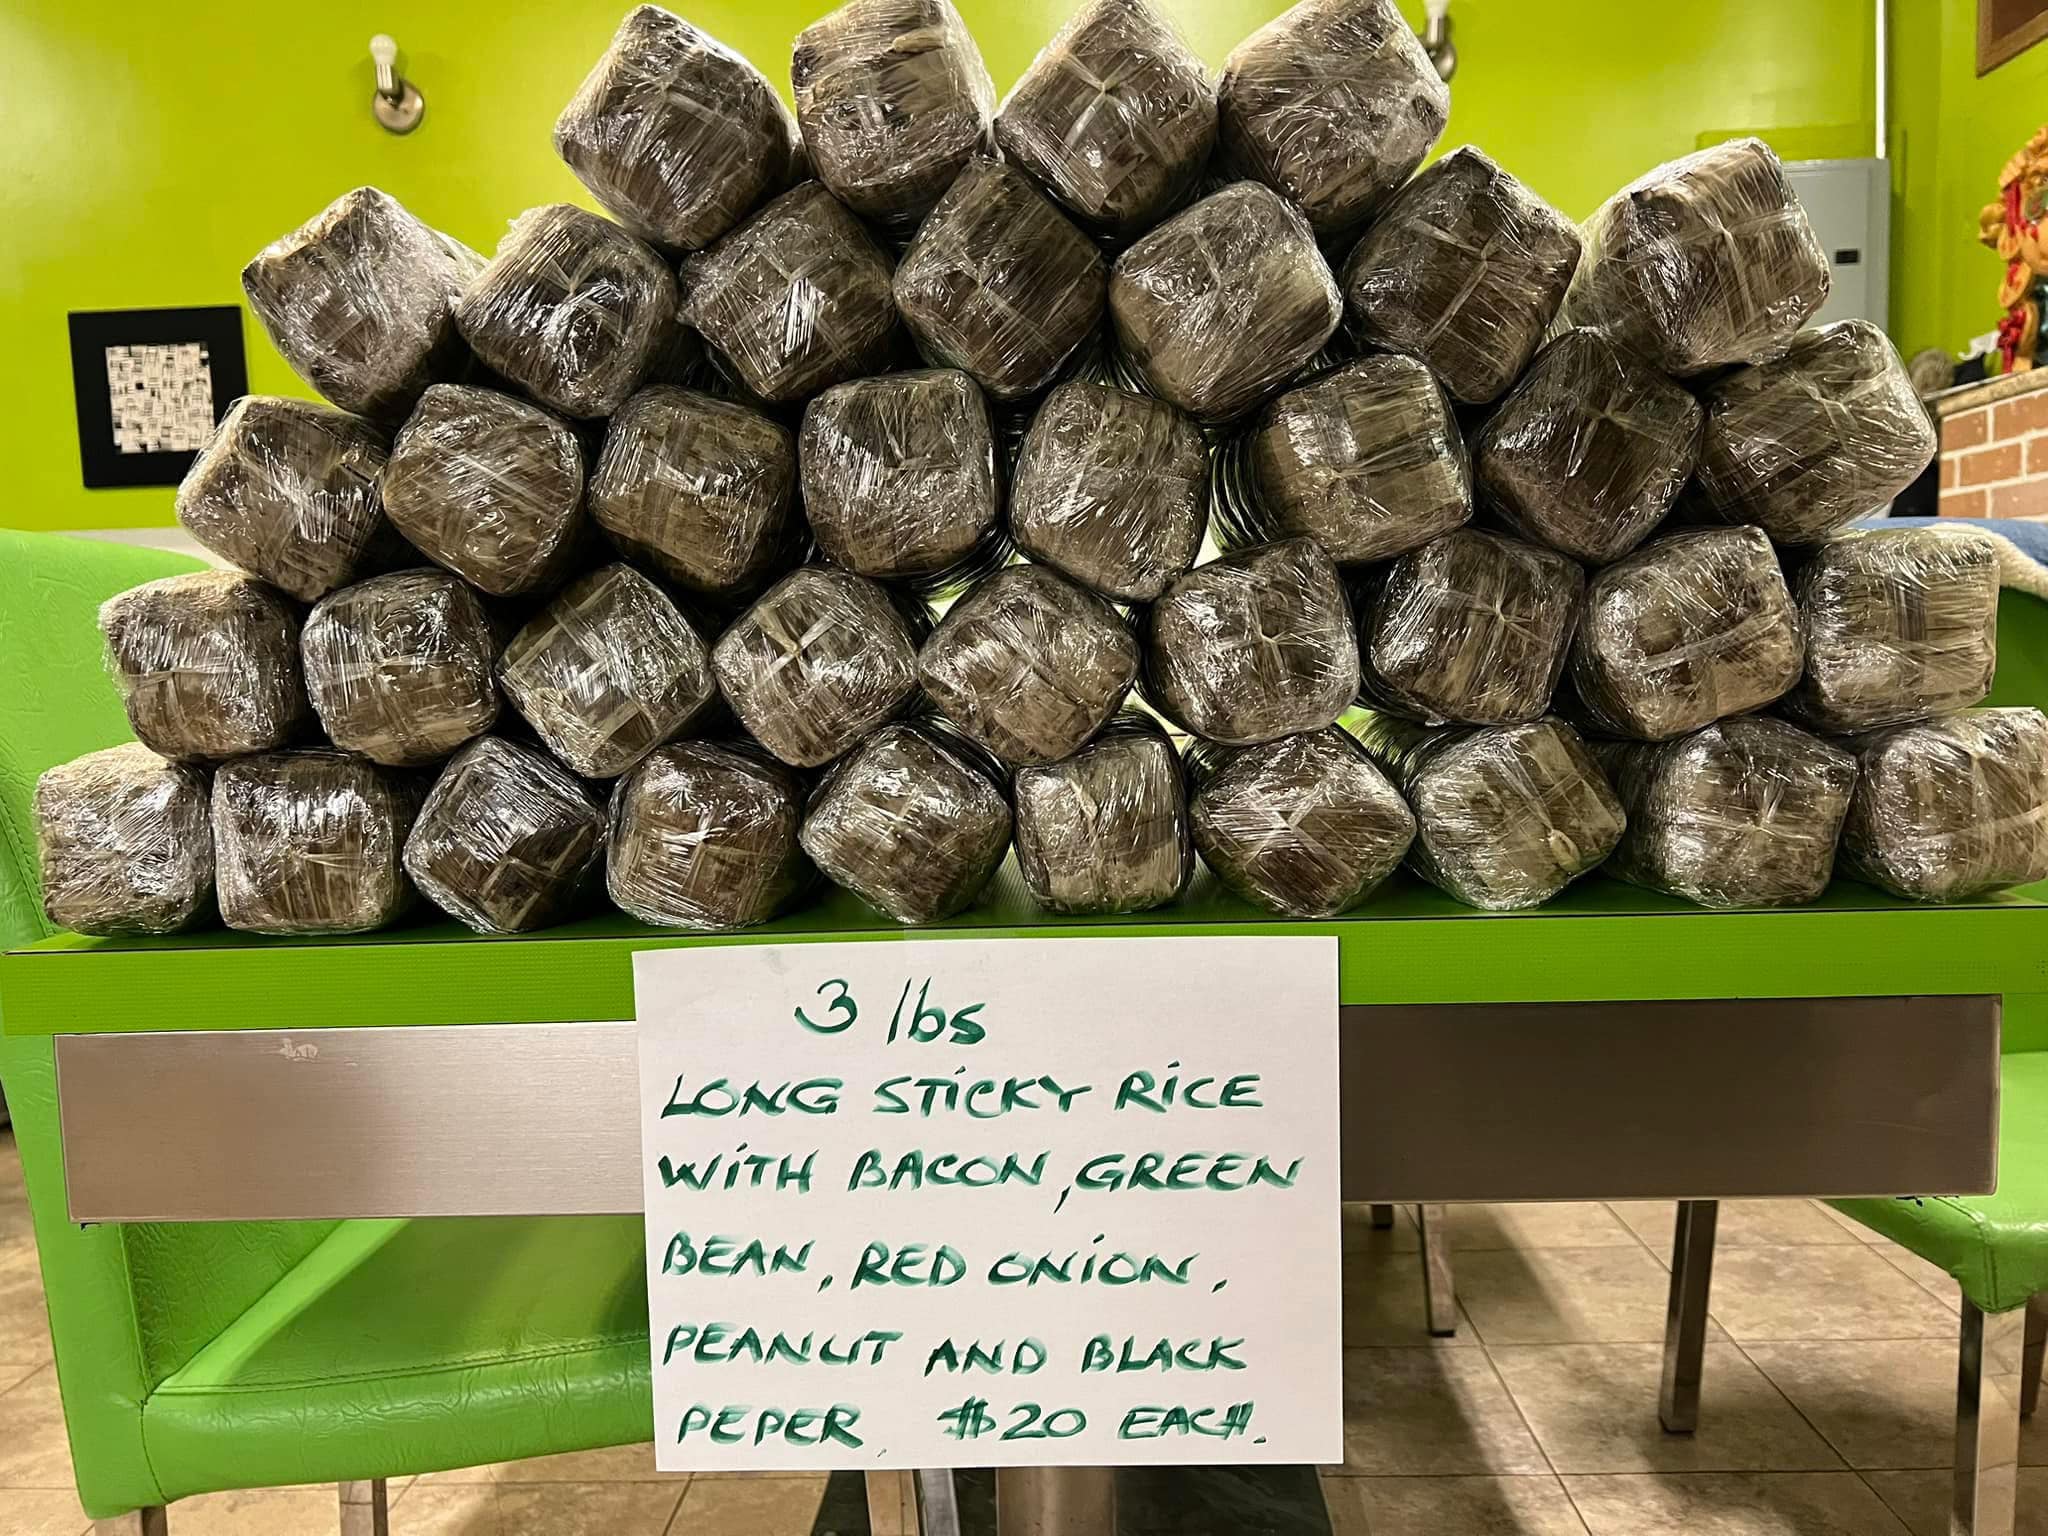 3 lbs
LONG STICKY RICE
WITH BACON, GREEN
BEAN, RED ONION,
PEANUT AND BLACK
PEPER. $20 EACH.